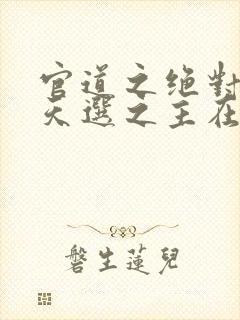 官道之绝對
天選之主在
磐生蓮兒